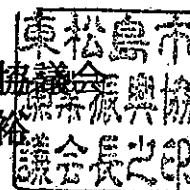 東松島市
協議会
業振興協
裕
議会長之印